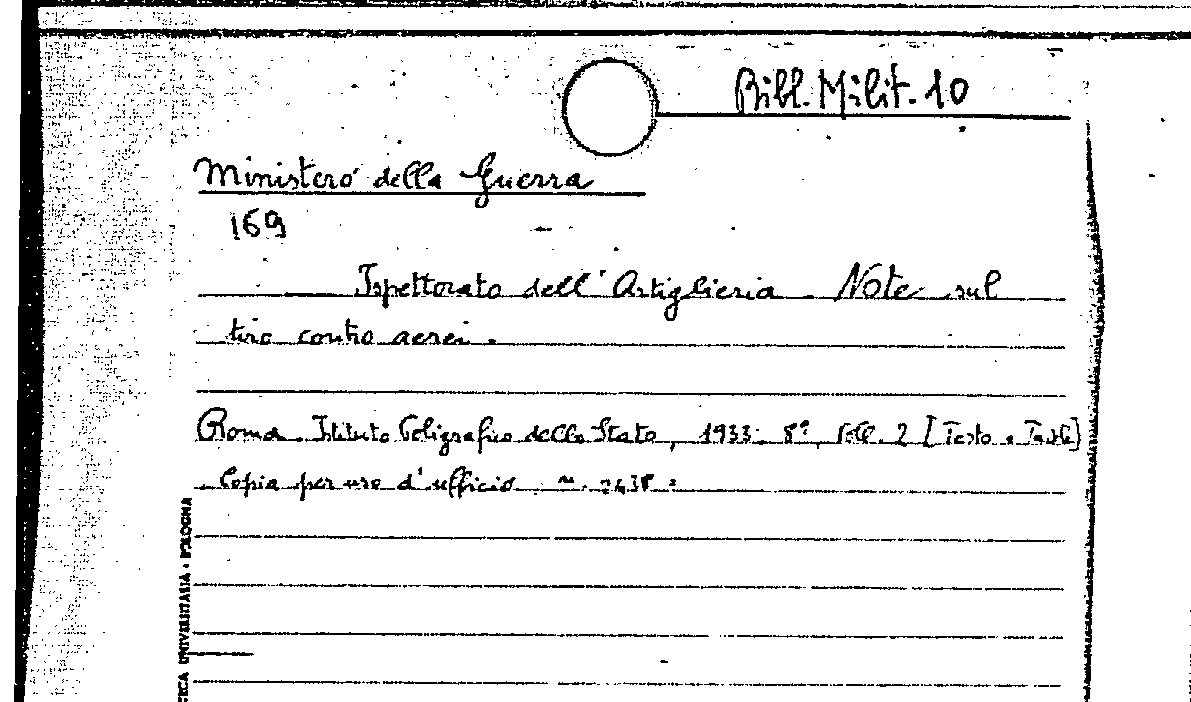 Bibl. Milit. 10
Ministero della Guerra
169
Ispettorato dell'Artiglieria. Note sul
tiro contro aerei.
Roma. Istituto Poligrafico dello Stato, 1933. 8º, Voll. 2 [Testo e Tavole]
Copia per uso d'ufficio n.
UNIVERSITARIA - BOLOGNA